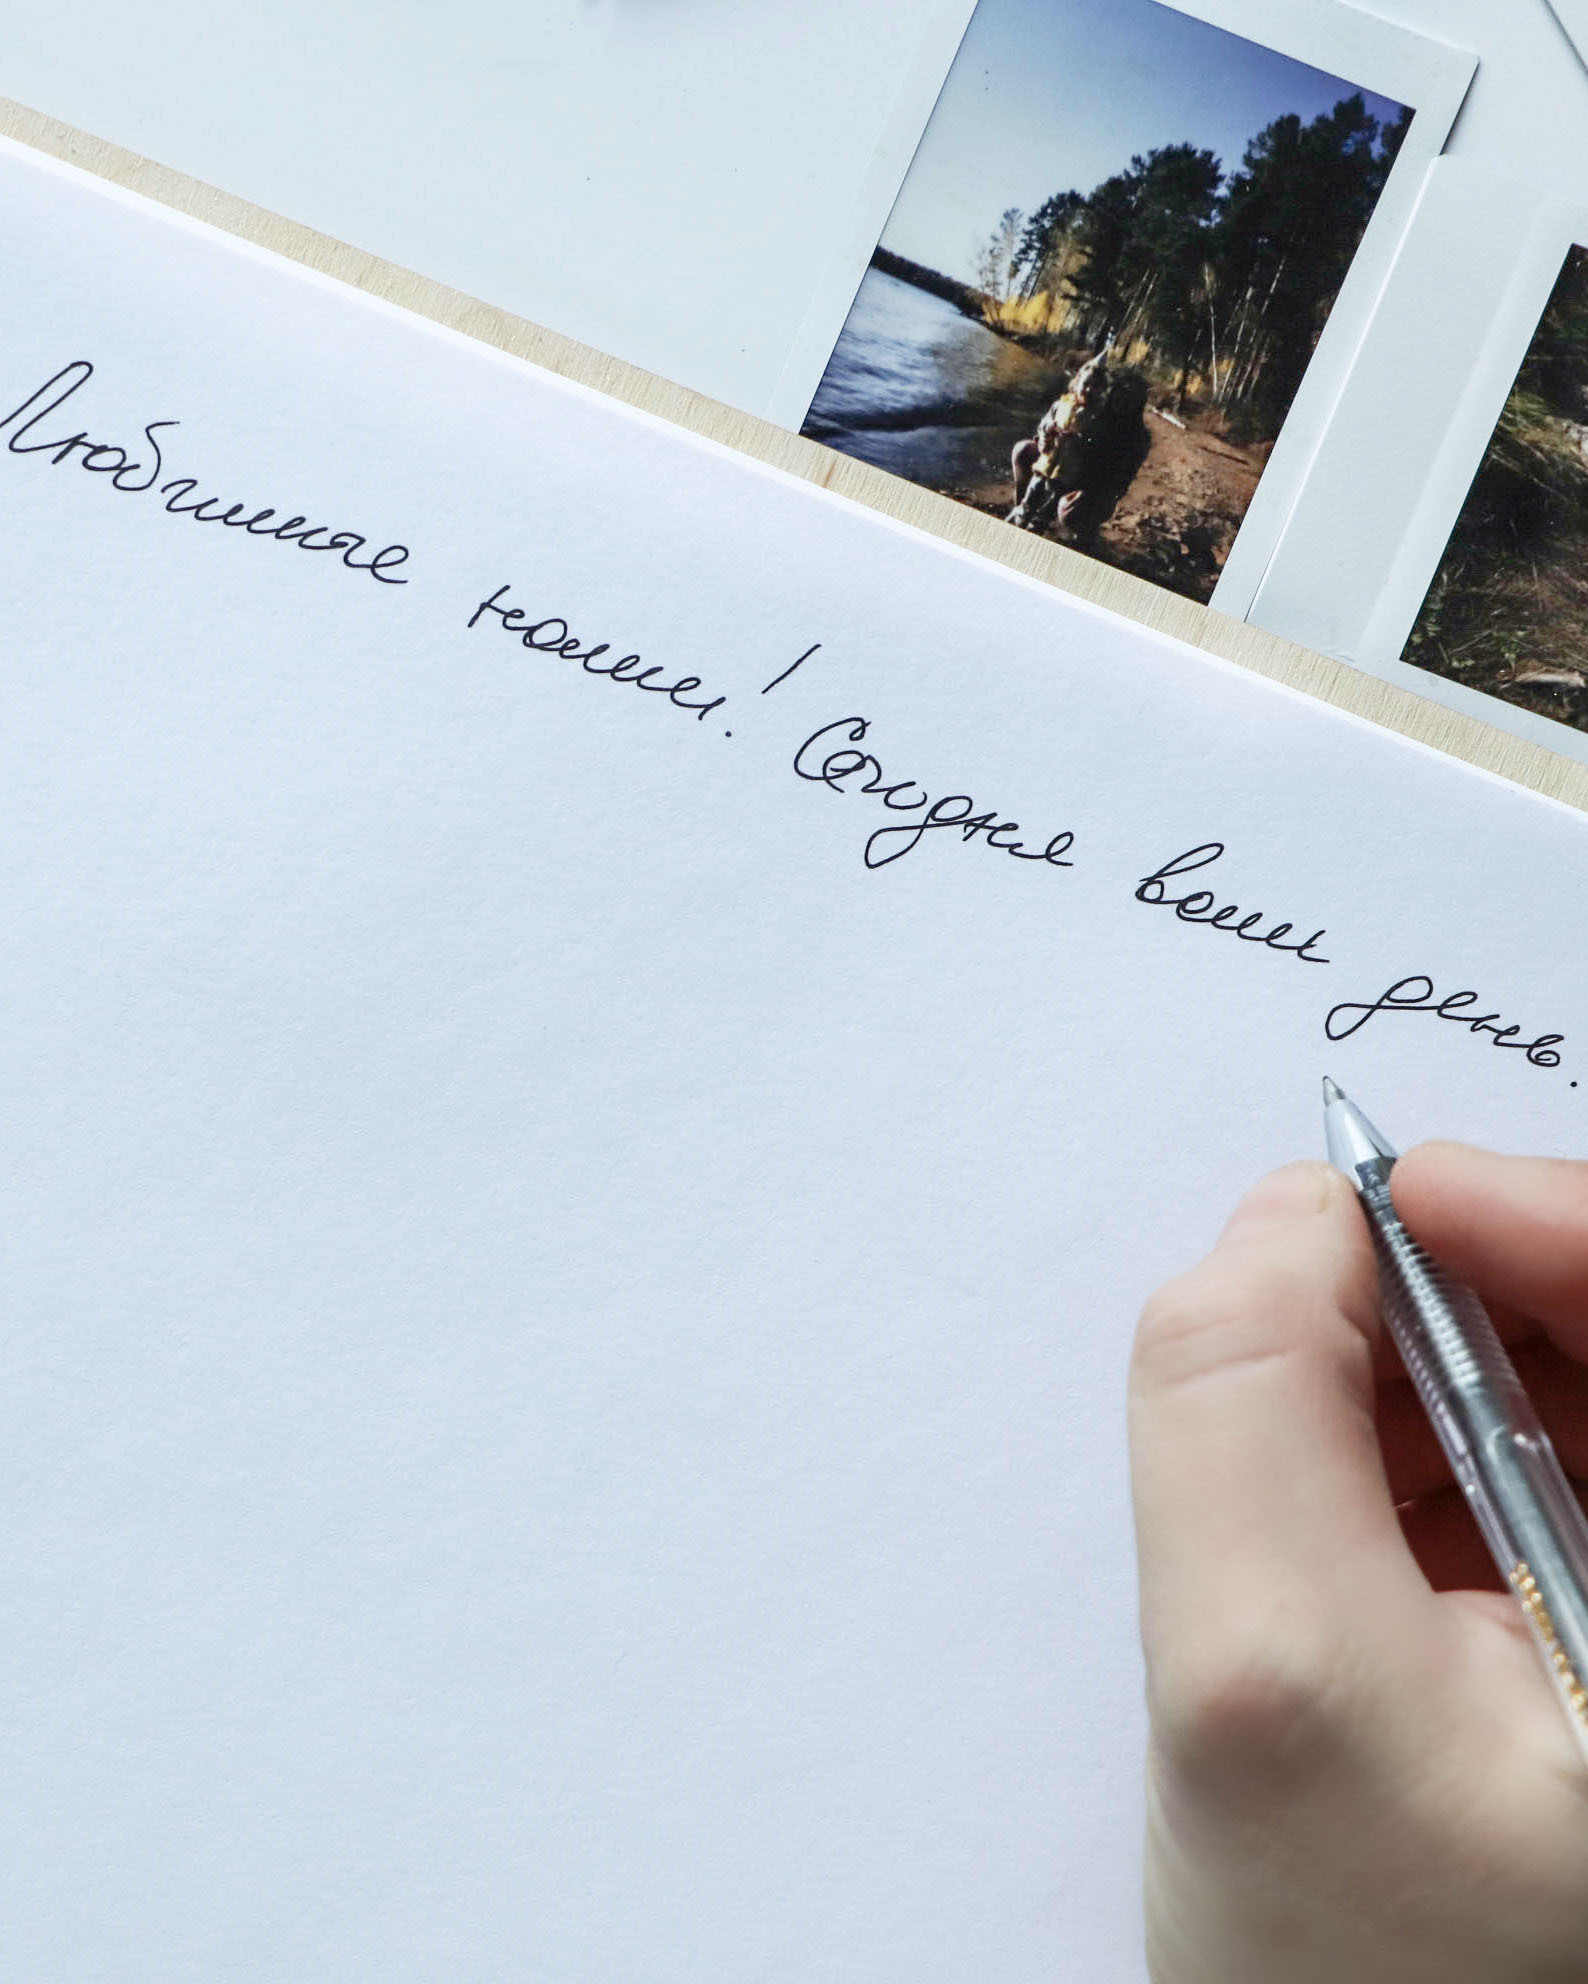 Любимые наши! Сегодня ваш день.